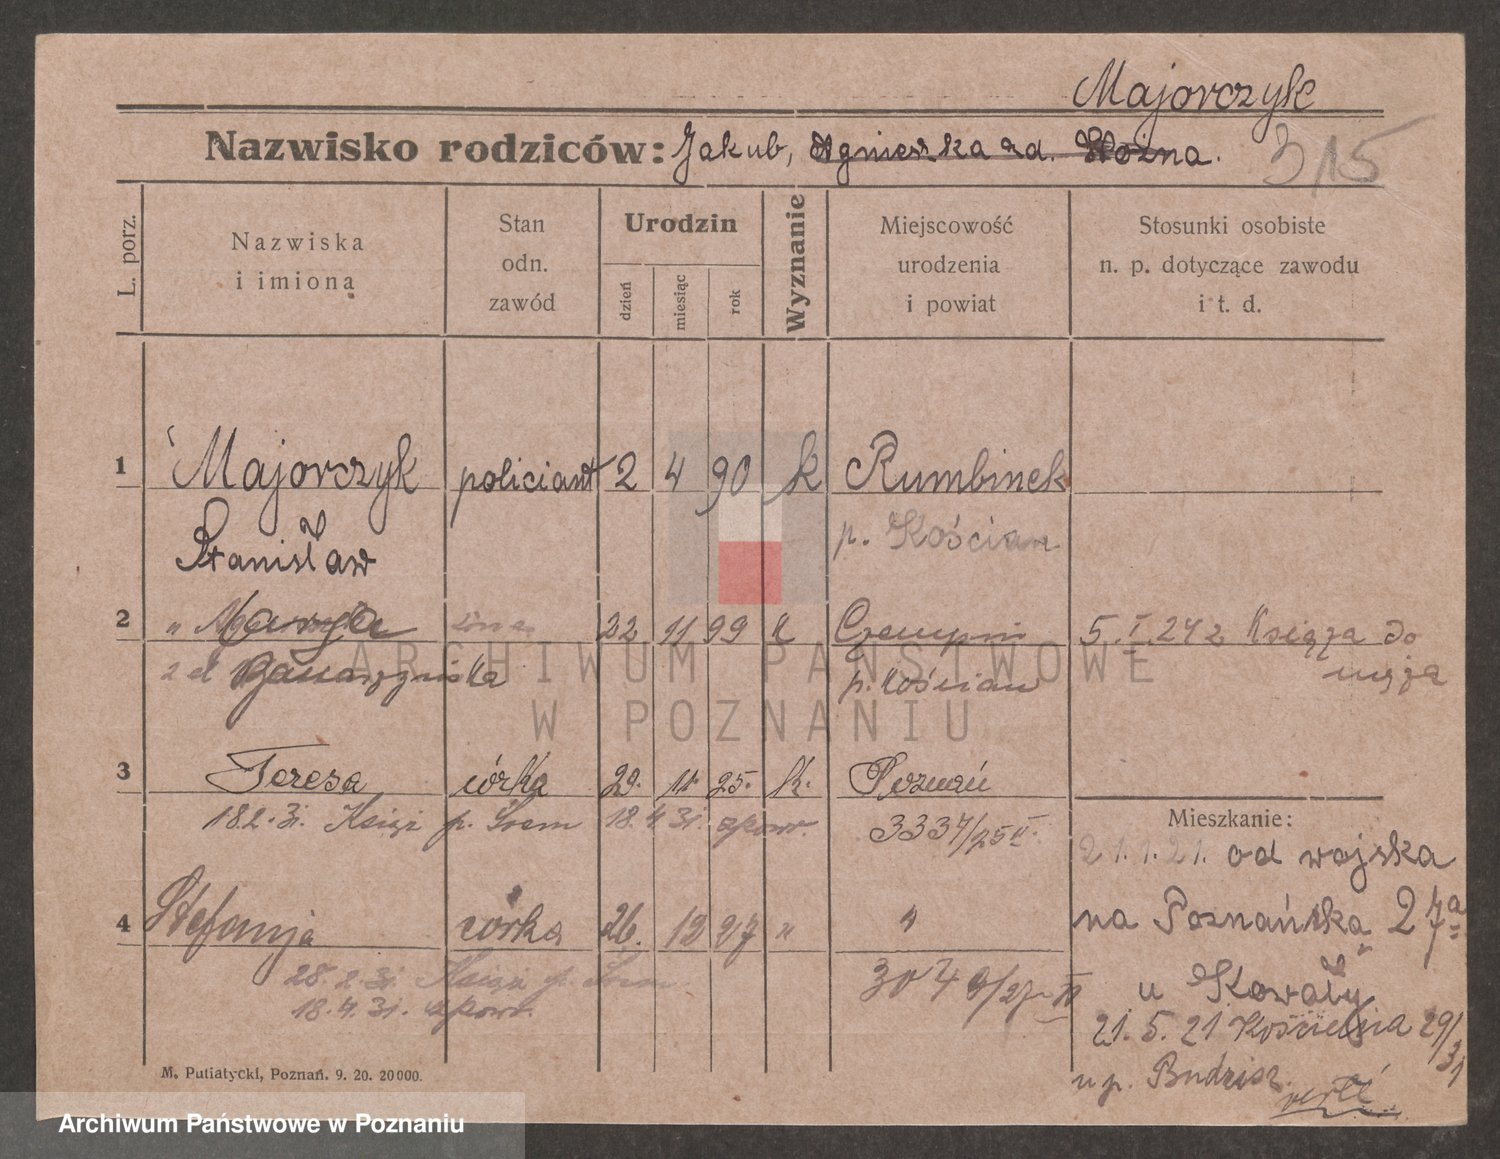 Majorczyk
Nazwisko rodziców: Jakub, Agnieszka zd. Woźna.
315
L. porz.
Nazwiska
i imiona
Stan
odn.
zawód
Urodzin
dzień
miesiąc
rok
Wyznanie
Miejscowość
urodzenia
i powiat
Stosunki osobiste
n. p. dotyczące zawodu
i t. d.
1 Majorczyk policiant 2 4 90 k Rumbinek
Stanisław p. Kościan
2 " żona 22 11 99 k Czempin 5. I. 24 z Książa do
zd p. Kościan męża
3 Teresa córka 29. 11 25. k. Poznań
18.2.31. Książ p. Śrem 18.4.31. zpowr. 3337/25 II.
Mieszkanie:
21.1.21. od wojska
4 Stefanja córka 26. 12 27 " "
na Poznańską 27a
28.2.31. Książ p. Śrem
18.4.31. zpowr.
u Kowały
21.5.21 Kościelna 29/31
u p. Budzisz.
M. Putiatycki, Poznań. 9. 20. 20000.
ARCHIWUM PAŃSTWOWE
W POZNANIU
Archiwum Państwowe w Poznaniu